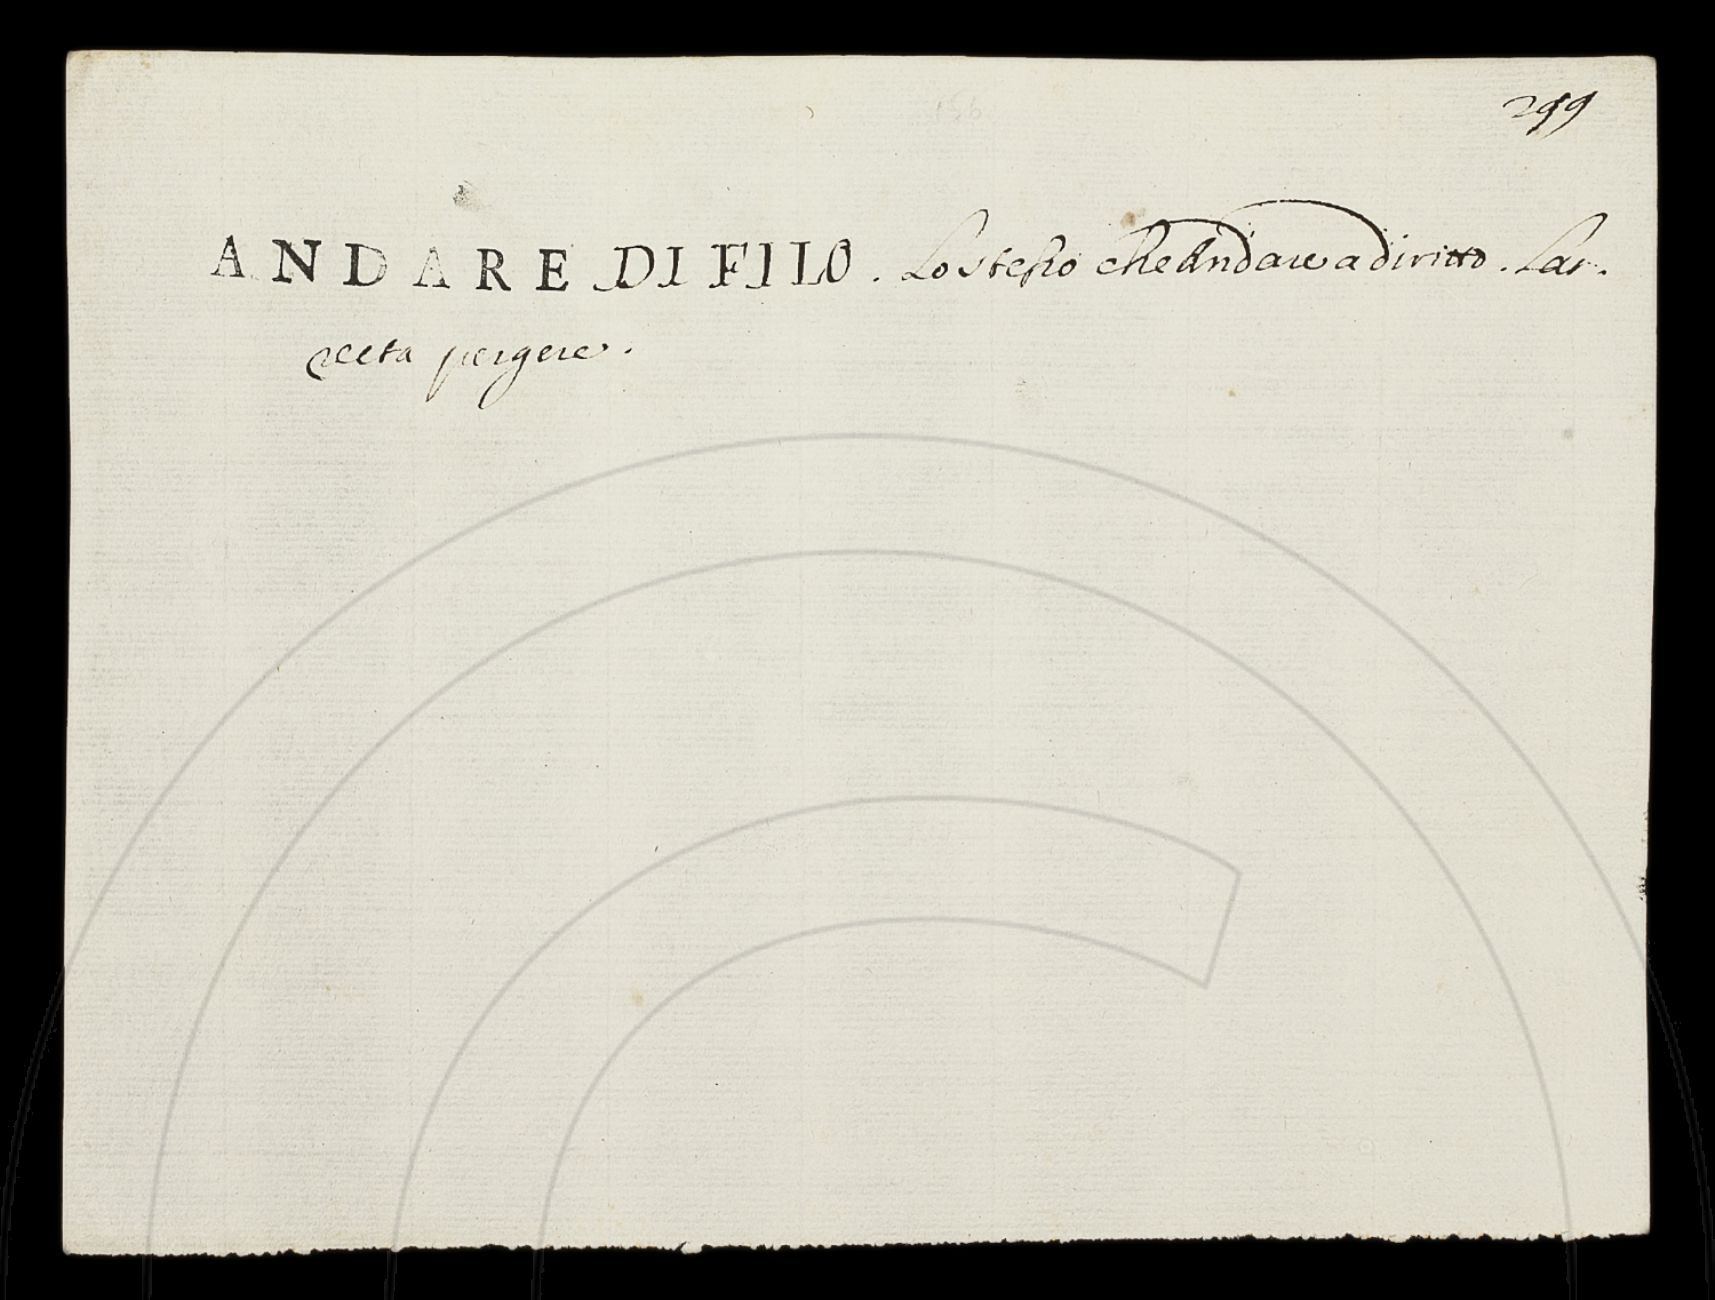 299
ANDARE DI FILO. Lo stesso che Andare a diritto. Lat.
recta pergere.